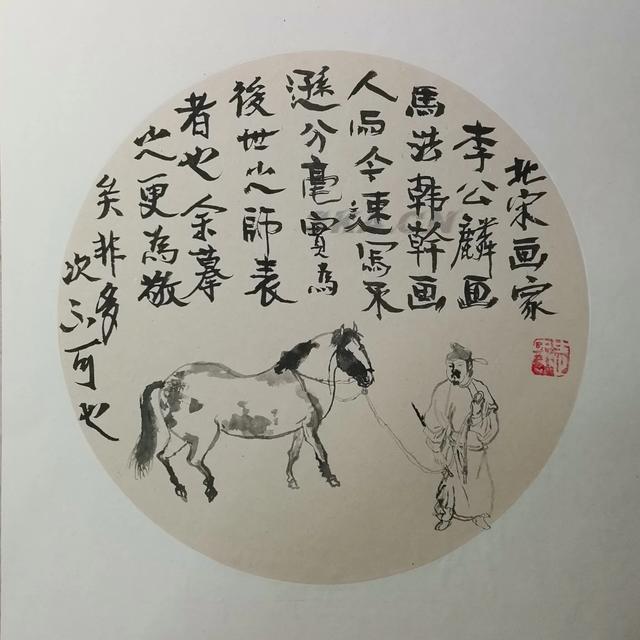 北宋画家
李公麟画
馬法韩幹画
人而今速寫不
遜分毫實為
後世之師表
者也余摹
之更為敬
矣非多
次不可也